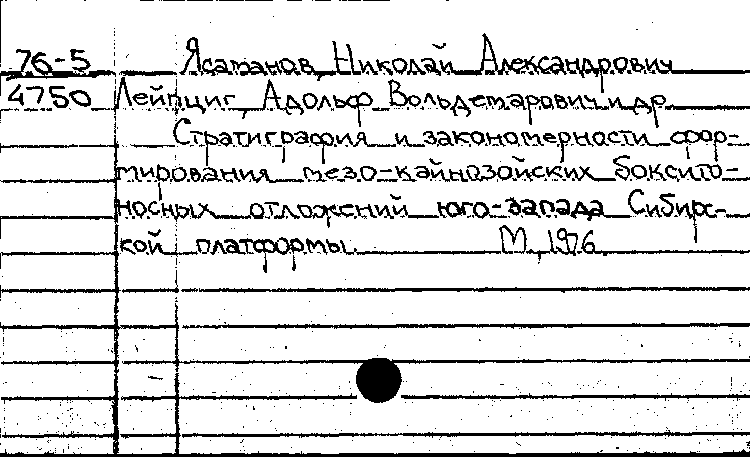 76-5 Ясаманов, Николай Александрович
4750 Лейпциг, Адольф Вольдемарович и др.
Стратиграфия и закономерности фор-
мирования мезо-кайнозойских боксито-
носных отложений юго-запада Сибирс-
кой платформы. М., 1976.